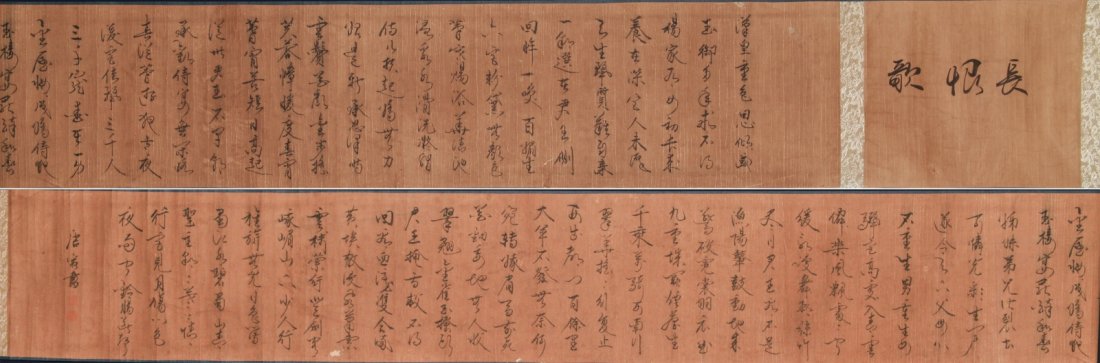 長恨歌
漢皇重色思傾國
御宇多年求不得
楊家有女初長成
養在深閨人未識
天生麗質難自棄
一朝選在君王側
回眸一笑百媚生
六宮粉黛無顏色
春寒賜浴華清池
溫泉水滑洗凝脂
侍兒扶起嬌無力
始是新承恩澤時
雲鬢花顏金步搖
芙蓉帳暖度春宵
春宵苦短日高起
從此君王不早朝
承歡侍宴無閒暇
春從春遊夜專夜
後宮佳麗三千人
三千寵愛在一身
金屋妝成嬌侍夜
玉樓宴罷醉和春
金屋妝成嬌侍夜
玉樓宴罷醉和春
姊妹弟兄皆列土
可憐光彩生門戶
遂令天下父母心
不重生男重生女
驪宮高處入青雲
仙樂風飄處處聞
緩歌慢舞凝絲竹
盡日君王看不足
漁陽鼙鼓動地來
驚破霓裳羽衣曲
九重城闕煙塵生
千乘萬騎西南行
翠華搖搖行復止
西出都門百餘里
六軍不發無奈何
宛轉蛾眉馬前死
花鈿委地無人收
翠翹金雀玉搔頭
君王掩面救不得
回看血淚相和流
黃埃散漫風蕭索
雲棧縈紆登劍閣
峨嵋山下少人行
旌旗無光日色薄
蜀江水碧蜀山青
聖主朝朝暮暮情
行宮見月傷心色
夜雨聞鈴腸斷聲
唐寅書